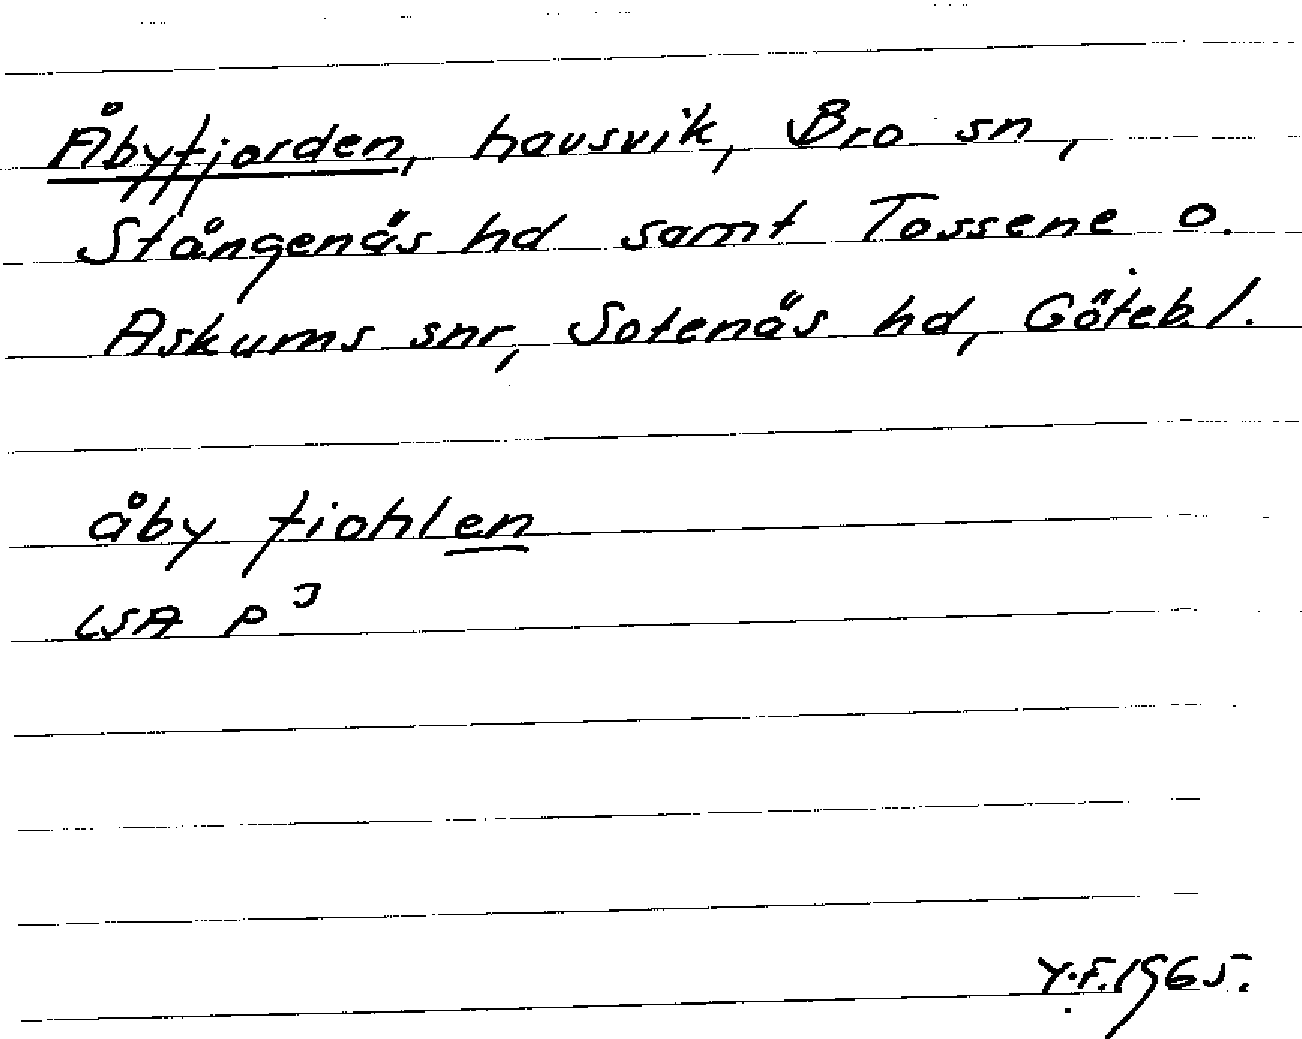 Åbyfjorden, havsvik, Bro sn,
Stångenäs hd samt Tossene o.
Askums snr, Sotenäs hd, Göteb. l.
åby fiohlen
LSA P
Y.F. 1965.